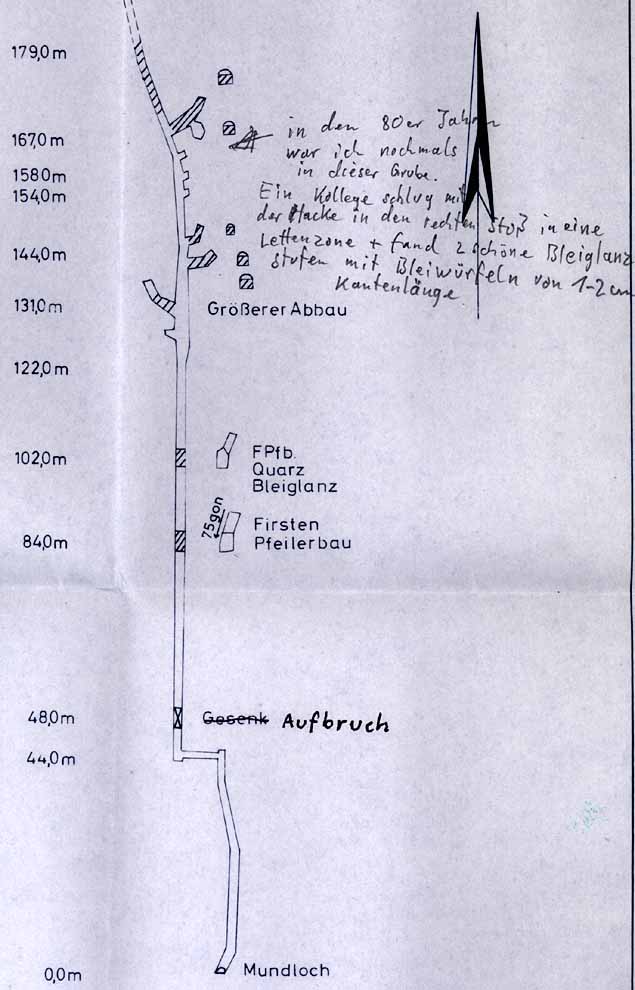 179,0m
in den 80er Jahren
167,0m
war ich nochmals
in dieser Grube.
158,0m
Ein Kollege schlug mit
154,0m
der Hacke in den rechten Stoß in eine
Lettenzone + fand 2 schöne Bleiglanz
144,0m
stufen mit Bleiwürfeln von 1-2cm
Kantenlänge
131,0m
Größerer Abbau
122,0m
102,0m
FPfb.
Quarz
Bleiglanz
75gon
84,0m
Firsten
Pfeilerbau
48,0m
Gesenk Aufbruch
44,0m
0,0m
Mundloch